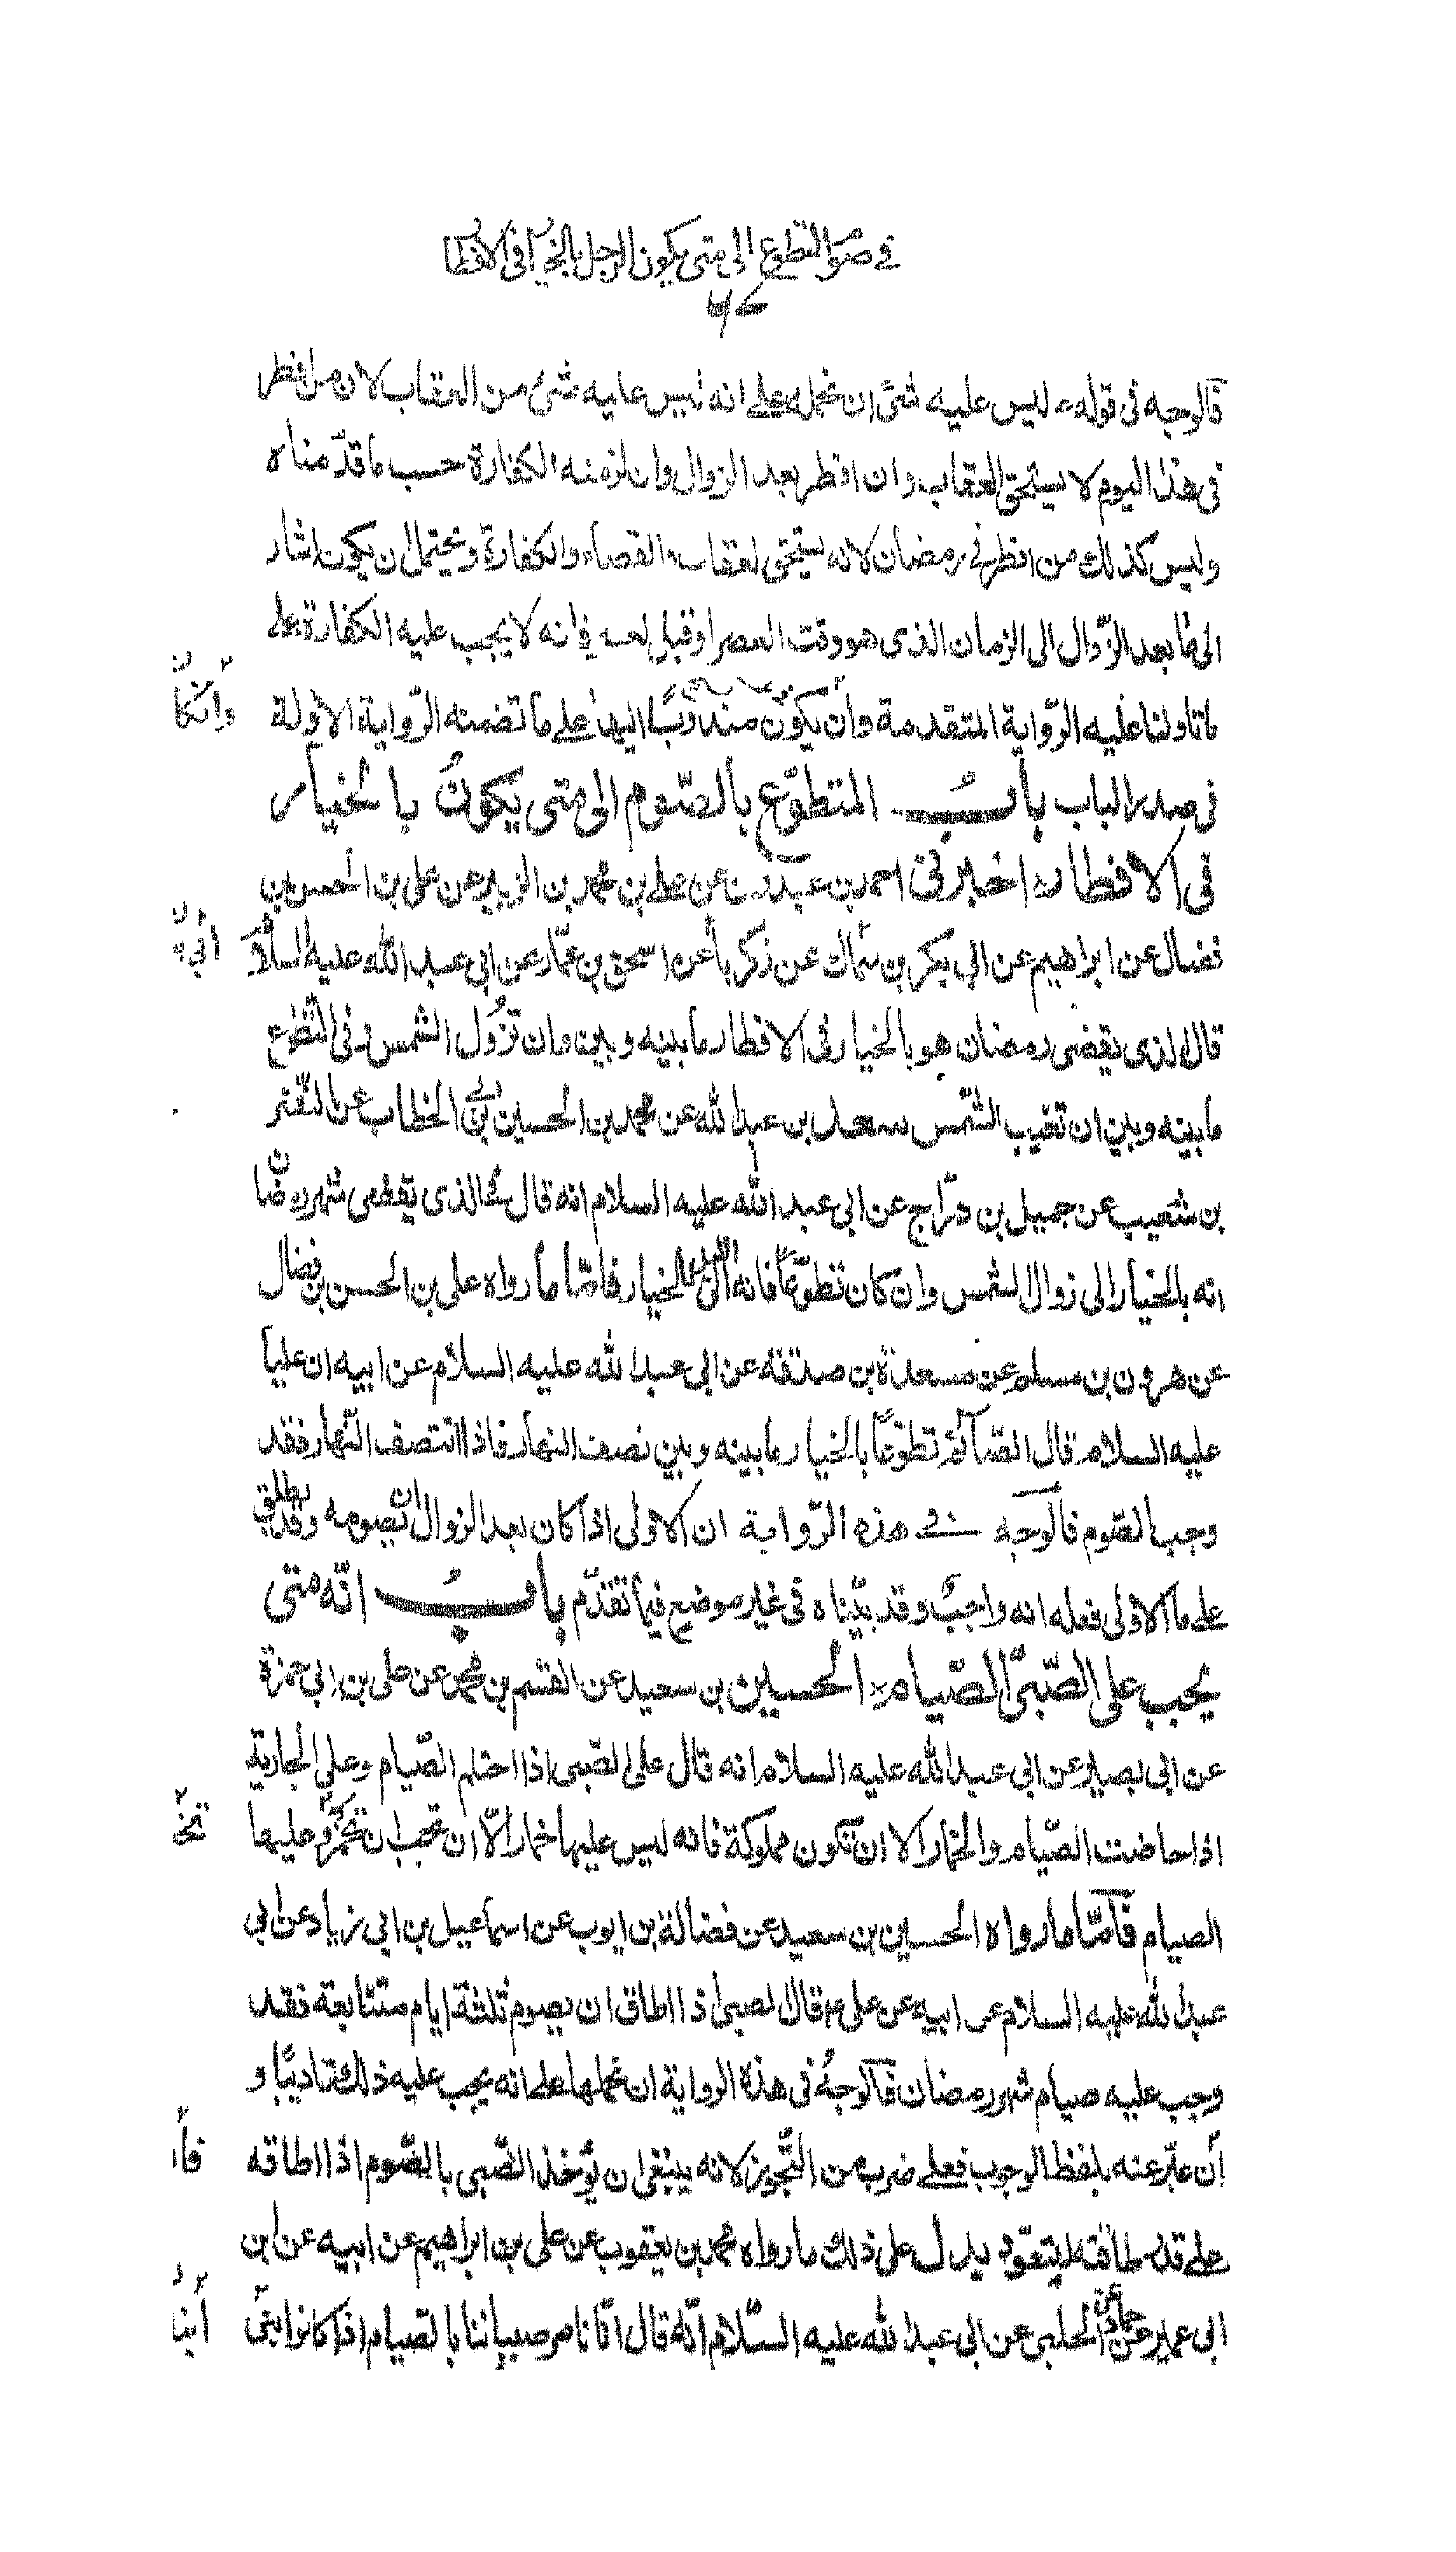 في صوم التطوع الى متى يكون الرجل بالخيار فى الافطار
فالوجه فى قوله ع ليس عليه شئ ان نحمله على انه ليس عليه شئ من العقاب لان من افطر
فى هذا اليوم لا يستحق العقاب وان افطر بعد الزوال وان لزمته الكفارة حسب ما قدّمناه
وليس كذلك من افطر فى رمضان لانه يستحق العقاب والقضاء والكفارة ويحتمل ان يكون اشار
الى ما بعد الزّوال الى الزمان الذى هو وقت العصر او قبل فانه لا يجب عليه الكفارة على
ما تاولنا عليه الرّواية المتقدمة وان يكون مندوبًا اليها على ما تضمنه الرّواية الاولة
فى صدر الباب بابُ المتطوّع بالصّوم الى متى يكونُ بالخيار
فى الافطار اخبرنى احمد بن عبدون عن على بن محمد بن الزبير عن على بن الحسن بن
فضال عن ابراهيم عن ابى بكر بن سماك عن زكريا عن اسحق بن عمّار عن ابى عبد الله عليه السلام
قال الذى يقضى رمضان هو بالخيار فى الافطار ما بينه وبين ان تزول الشمس وفى التطوع
ما بينه وبين ان تغيب الشمس سعد بن عبد الله عن محمد بن الحسين بن ابى الخطاب عن النضر
بن شعيب عن جميل بن درّاج عن ابى عبد الله عليه السلام انه قال فى الذى يقضى شهر رمضان
انه بالخيار الى زوال الشمس وان كان تطوّعاً فانه الى الليل بالخيار فامّا ما رواه على بن الحسن بن فضال
عن هرون بن مسلم عن مسعدة بن صدقة عن ابى عبد الله عليه السلام عن ابيه ان علياً
عليه السلام قال الصّائم تطوّعاً بالخيار ما بينه وبين نصف النهار فاذا انتصف النّهار فقد
وجب الصّوم فالوجه فى هذه الرّواية ان الاولى اذا كان بعد الزوال ان يصومه وقد يطلق
على ما الاولى فعله انه واجبٌ وقد بيّناه فى غير موضع فيما تقدّم بابُ انّه متى
يجب على الصّبىّ الصّيام الحسين بن سعيد عن القسم بن محمد عن على بن ابى حمزة
عن ابى بصير عن ابى عبد الله عليه السلام انه قال على الصّبى اذا احتلم الصّيام وعلى الجارية
اذا حاضت الصّيام والخمار الا ان تكون مملوكة فانه ليس عليها خمار الّا ان تحب ان تختمر وعليها
الصيام فامّا ما رواه الحسين بن سعيد عن فضالة بن ايوب عن اسماعيل بن ابى زياد عن ابى
عبد الله عليه السلام عن ابيه عن على ع قال الصبى اذا اطاق ان يصوم ثلثة ايام متتابعة فقد
وجب عليه صيام شهر رمضان فالوجهُ فى هذه الرواية ان نحملها على انه يجب عليه ذلك تاديبًا و
ان عبّر عنه بلفظ الوجوب فعلى ضرب من التّجوّز لانه ينبغى ان يؤخذ الصّبى بالصّوم اذا اطاقه
على قدر طاقته ليتعوّد يدل على ذلك ما رواه محمد بن يعقوب عن على بن ابراهيم عن ابيه عن ابن
ابى عمير عن حماد عن الحلبى عن ابى عبد الله عليه السّلام انّه قال انّا نامر صبياننا بالصّيام اذا كانوا بنى